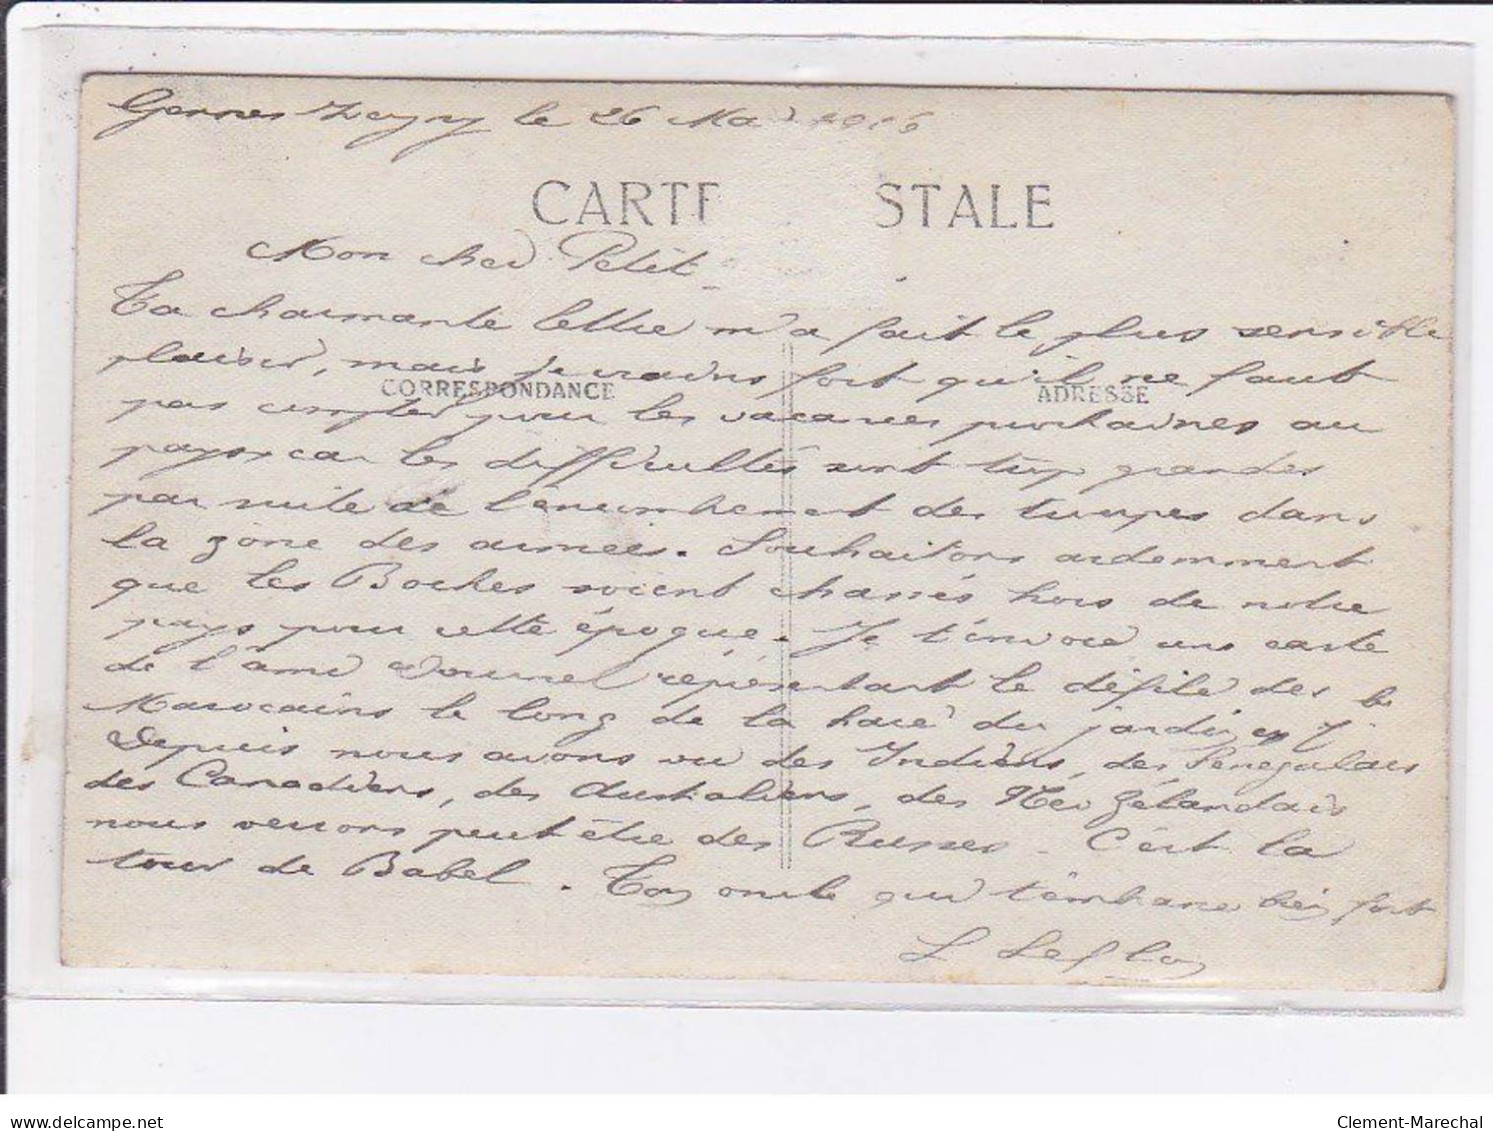 le 26 Mai 1916
CARTE STALE
Mon cher Petit
Ta charmante lettre m'a fait le plus sensible
plaisir, mais je crains fort qu'il ne faut
CORRESPONDANCE ADRESSE
pas compter pour les vacances prochaines au
pays car les difficultés sont trop grandes
par suite de l'encombrement des troupes dans
la zône des armées. Souhaitons ardemment
que les Boches soient chassés hors de notre
pays pour cette époque. Je t'envoie une carte
de l'ami représentant le défilé des
Marocains le long de la haie du jardin
Depuis nous avons vu des Indiens, des Sénégalais
des Canadiens, des Australiens, des Néo Zélandais
nous verrons peut être des Russes. C'est la
tour de Babel. Ton oncle qui t'embrasse bien fort
L
delcampe.net Clement-Marechal